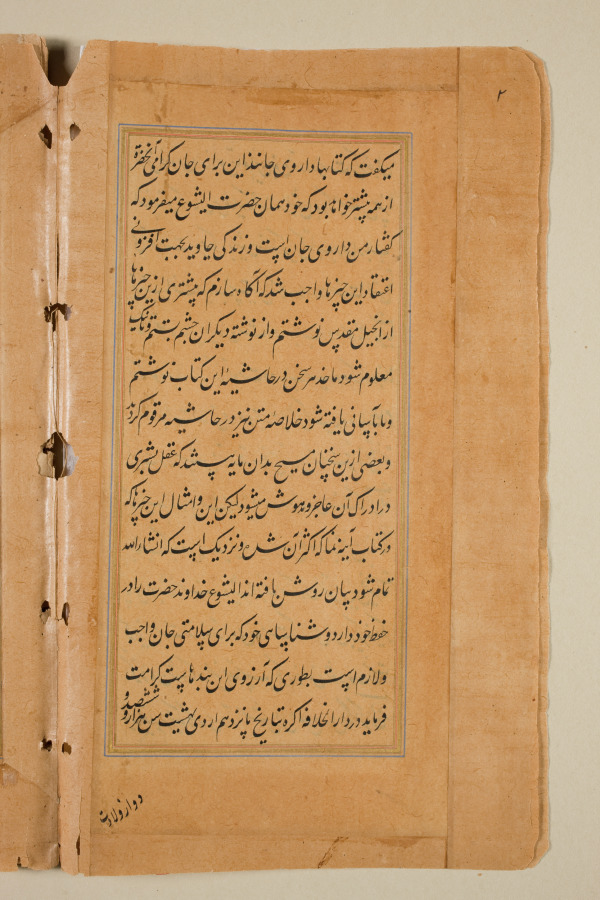 ۲
میکفت که کتابها داروی جانند این برای جان کرامی آنحضرة
از همه پیشتر خواهد بود که خود همان حضرت الیشوع میفرمود که
کفتار من داروی جان است و زندکی جاوید بجهت افزونی
اعتقاد این چیزها واجب شد که آکاه سازم که پیشتری ازین چیزها
از انجیل مقدس نوشتم و از نوشته دیکران چشم بستم و تا نیک
معلوم شود ماخذ هر سخن در حاشیهٔ این کتاب نوشتم
و تا بآسانی یافته شود خلاصهٔ متن نیز در حاشیه مرقوم کردید
و بعضی ازین سخنان مسیح بدان مایه هستند که عقل بشری
در ادراک آن عاجز و بیهوش میشود لیکن این و امثال این چیزها که
در کتاب آینه نما که اکثر آن شده و نزدیک است که انشاءالله
تمام شود بیان روشن یافته اند الیشوع خداوند حضرت را در
حفظ خود دارد و شناسای خود که برای سلامتی جان واجب
و لازم است بطوری که آرزوی این بنده است کرامت
فرماید در دار الخلافه اکره بتاریخ پانزدهم اردی بهشت سن هزار و ششصد و
دو از ولادت